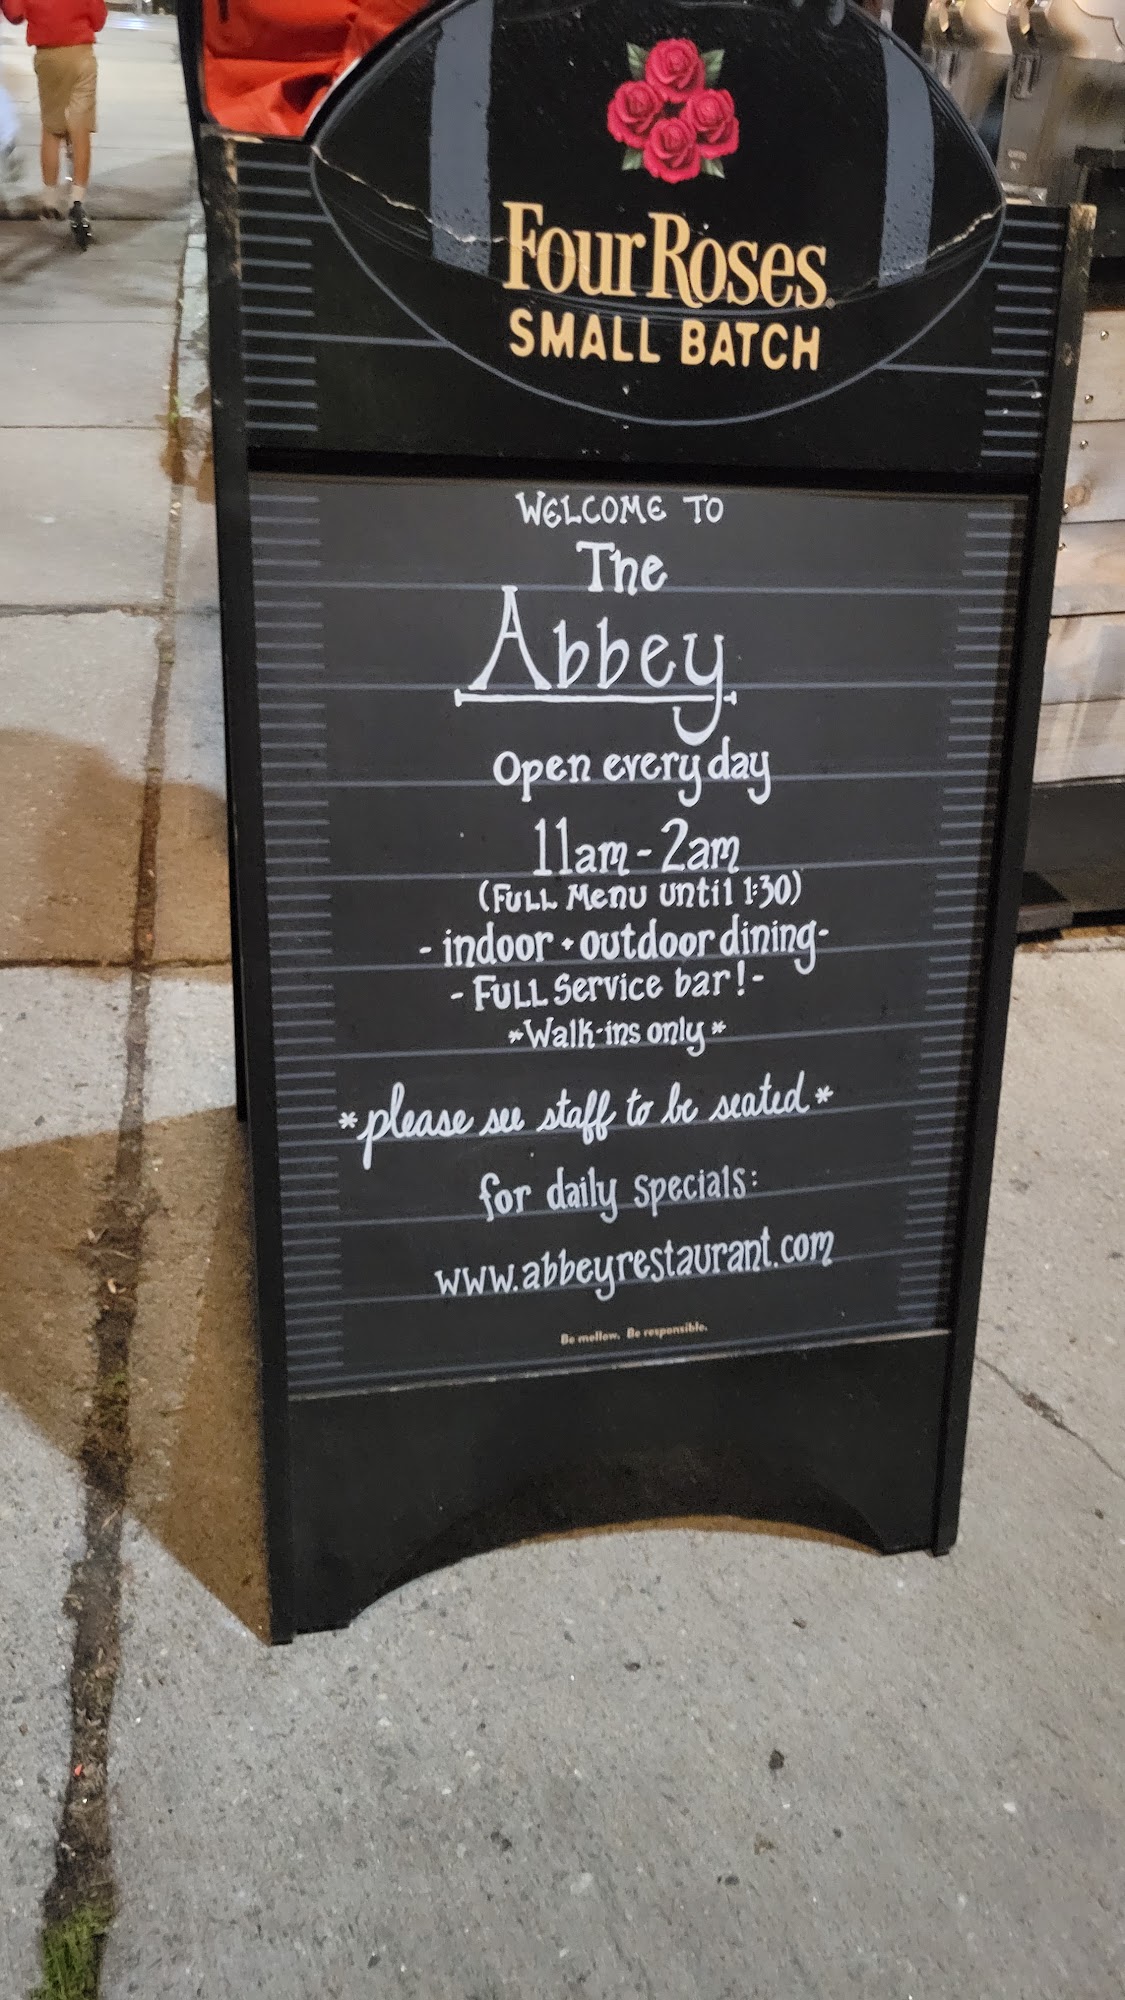 Four Roses
SMALL BATCH
WELCOME TO
The
Abbey
open every day
11am - 2am
(FULL Menu until 1:30)
- indoor + outdoor dining -
- FULL Service bar! -
*Walk-ins only*
*please see staff to be seated*
for daily specials:
www.abbeyrestaurant.com
Be mellow. Be responsible.